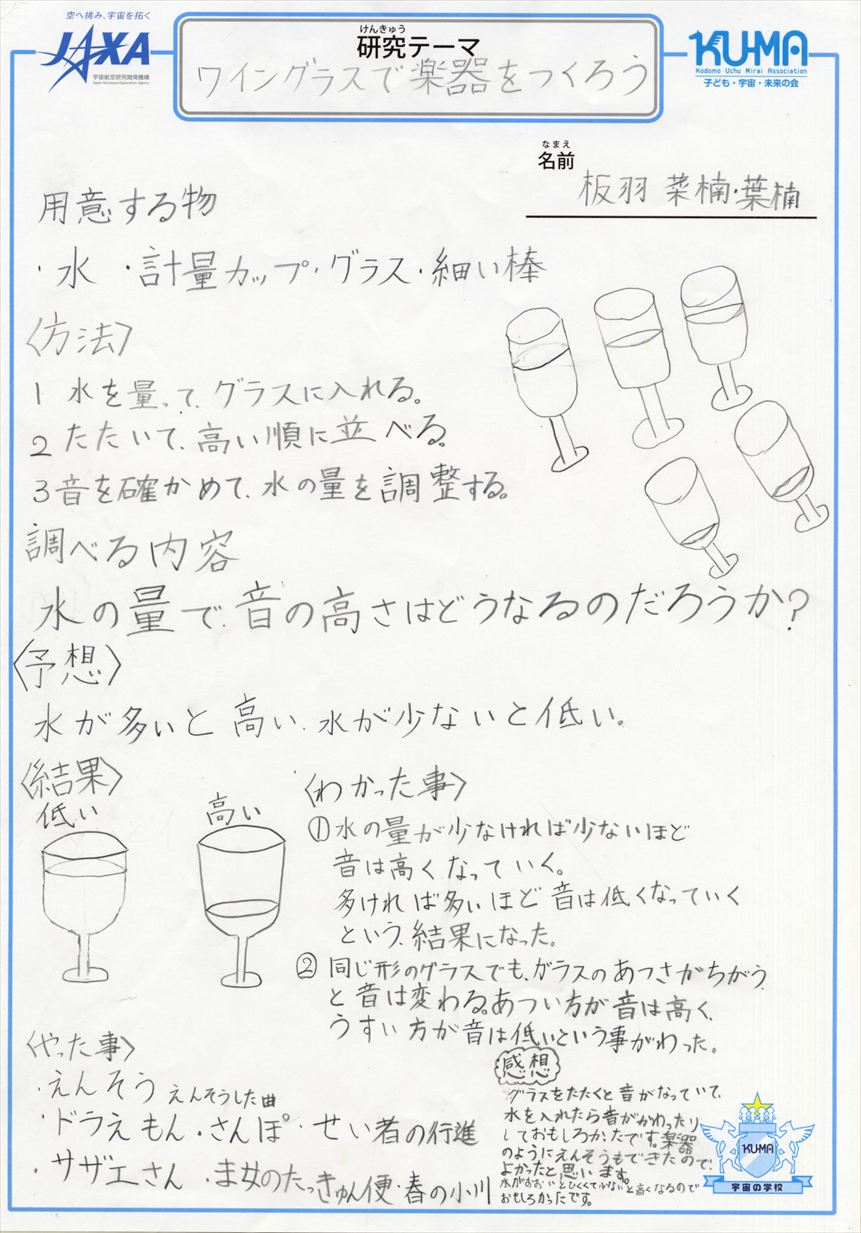 空へ挑み、宇宙を拓く
JAXA
宇宙航空研究開発機構
Japan Aerospace Exploration Agency
けんきゅう
研究テーマ
ワイングラスで楽器をつくろう
KU-MA
Kodomo Uchu Mirai Association
子ども・宇宙・未来の会
なまえ
名前
板羽 菜楠・葉楠
用意する物
・水 ・計量カップ・グラス・細い棒
〈方法〉
1 水を量って、グラスに入れる。
2 たたいて、高い順に並べる。
3 音を確かめて、水の量を調整する。
調べる内容
水の量で、音の高さはどうなるのだろうか?
〈予想〉
水が多いと高い、水が少ないと低い。
〈結果〉
低い
高い
〈わかった事〉
①水の量が少なければ少ないほど
音は高くなっていく。
多ければ多いほど音は低くなっていく
という、結果になった。
② 同じ形のグラスでも、ガラスのあつさがちがう
と音は変わる。あつい方が音は高く、
うすい方が音は低いという事がわった。
〈やった事〉
・えんそう えんそうした曲
・ドラえもん・さんぽ・せい者の行進
・サザエさん ・ま女のたっきゅん便・春の小川
感想
グラスをたたくと音がなっていて、
水を入れたら音がかわったり
しておもしろかたです。楽器
のようにえんそうもできたので、
よかったと思います。
水がおおいとひくくて少ないと高くなるので
おもしろかったです。
KU-MA
宇宙の学校